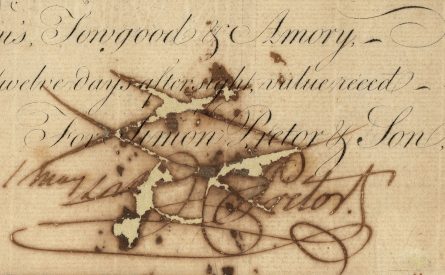 Towgood & Amory,
twelve days after sight, value receed
For Simon Pretor & Son,
Pretor